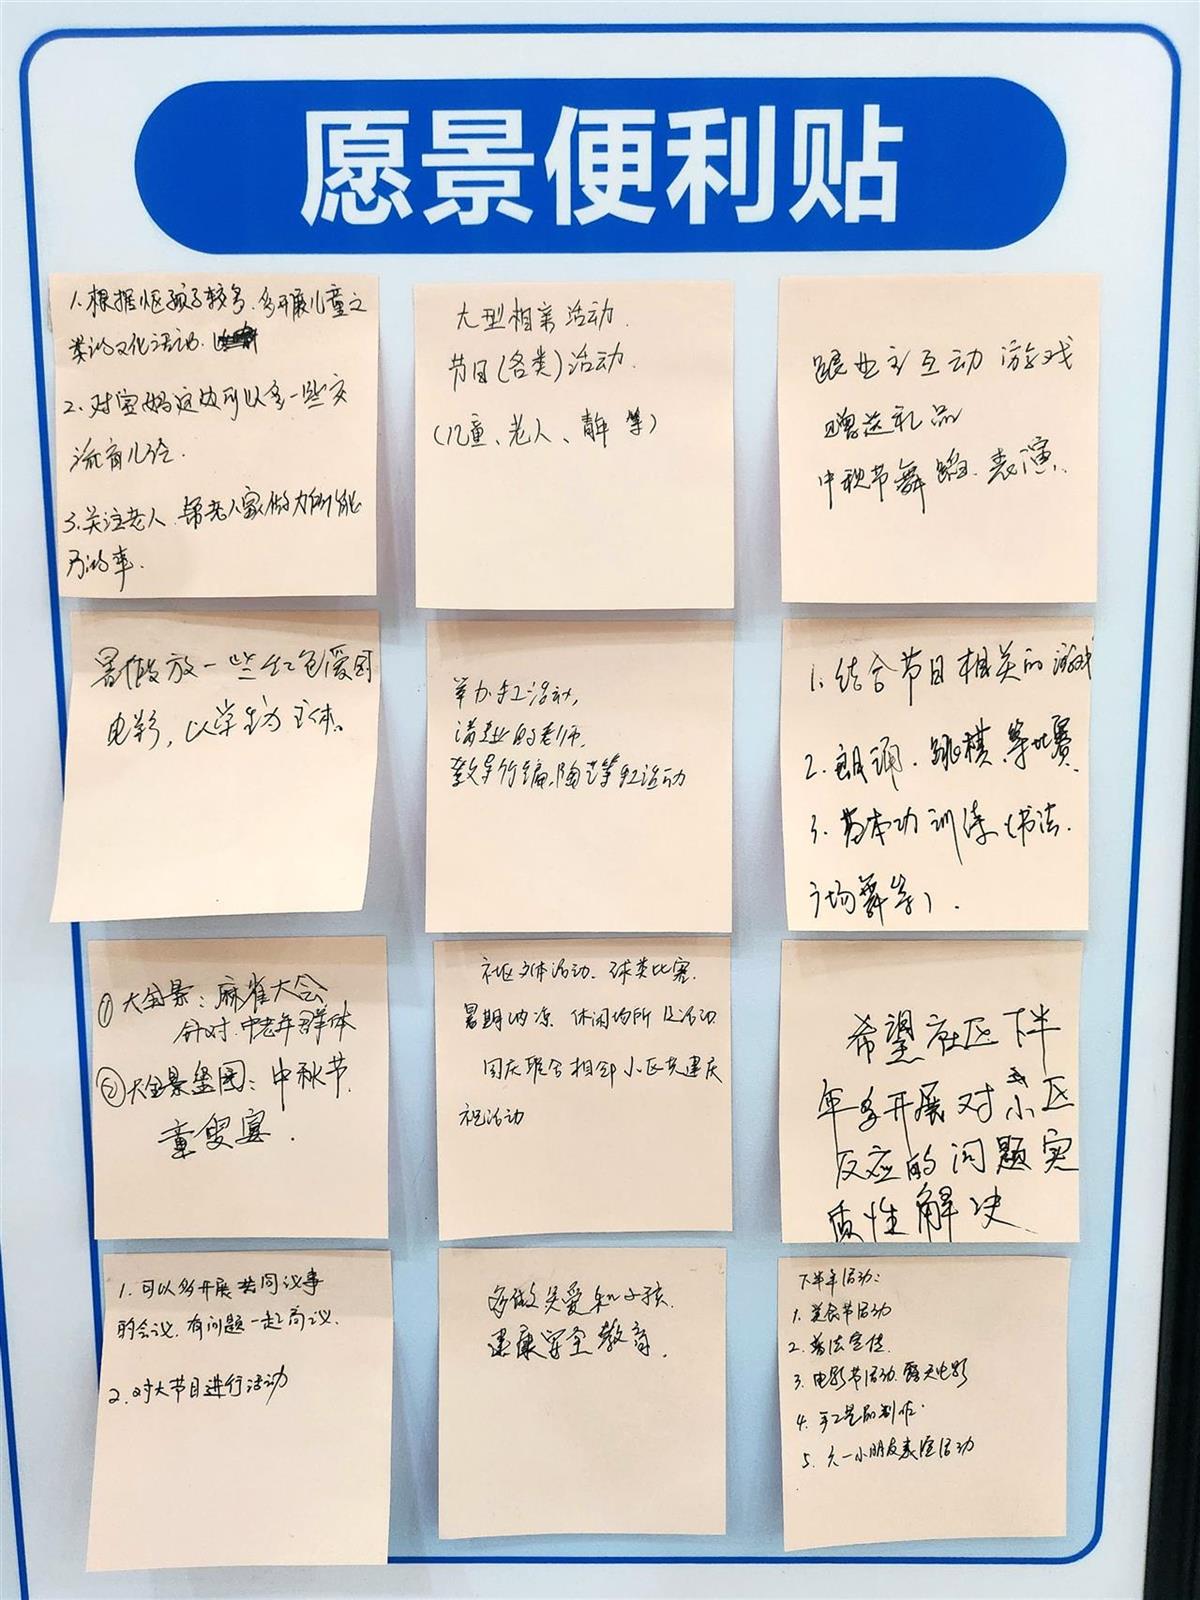 愿景便利贴
1.根据小区孩子较多,多开展儿童之
类的文化活动.
2.对宝妈这边可以多一些交
流育儿经.
3.关注老人,帮老人家做力所能
及的事.
大型相亲活动.
节目(各类)活动.
(儿童、老人、青年等)
跟业主互动游戏
赠送礼品
中秋节舞蹈表演.
暑假放一些红色爱国
电影,以学生为主体.
举办手工活动,
请专业的老师,
教导竹编、陶艺等手工活动
1.结合节目相关的游戏
2.朗诵、跳棋等比赛
3.基本功训练(书法.
广场舞等).
①大全景:麻雀大会
针对中老年群体
②大全景星图:中秋节
童叟宴.
社区文体活动、球类比赛.
暑期纳凉 休闲场所及活动
国庆联合相邻小区共建庆
祝活动
希望社区下半
年多开展对我小区
反应的问题实
质性解决
1.可以多开展共同议事
的会议,有问题一起商议.
2.对大节目进行活动
多做关爱和小孩.
健康安全教育.
下半年活动:
1.美食节活动
2.普法宣传.
3.电影节活动.露天电影
4.手工艺品制作.
5.六一小朋友表演活动